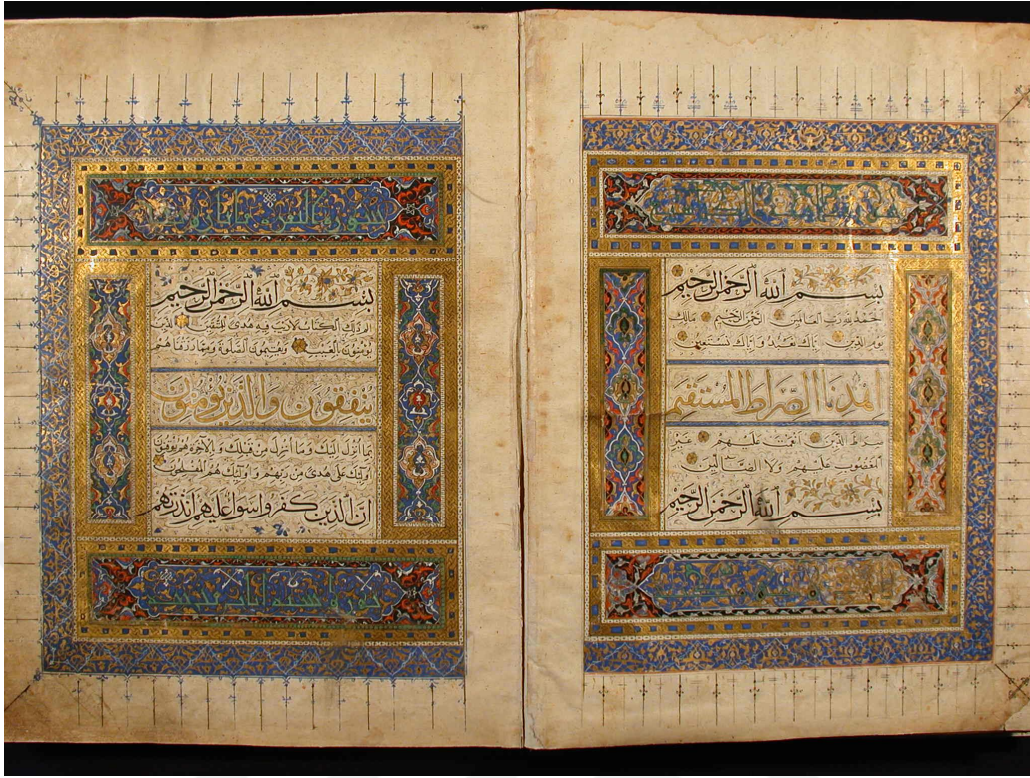 بِسْمِ اللهِ الرَّحْمٰنِ الرَّحِيمِ
الحَمْدُ لِلّٰهِ رَبِّ العَالَمِينَ الرَّحْمٰنِ الرَّحِيمِ مَالِكِ
يَوْمِ الدِّينِ إِيَّاكَ نَعْبُدُ وَإِيَّاكَ نَسْتَعِينُ
اِهْدِنَا الصِّرَاطَ المُسْتَقِيمَ
صِرَاطَ الَّذِينَ أَنْعَمْتَ عَلَيْهِمْ غَيْرِ
المَغْضُوبِ عَلَيْهِمْ وَلَا الضَّالِّينَ
بِسْمِ اللهِ الرَّحْمٰنِ الرَّحِيمِ
بِسْمِ اللهِ الرَّحْمٰنِ الرَّحِيمِ
الم ذَلِكَ الكِتَابُ لَا رَيْبَ فِيهِ هُدًى لِلْمُتَّقِينَ الَّذِينَ
يُؤْمِنُونَ بِالغَيْبِ وَيُقِيمُونَ الصَّلَوةَ وَمِمَّا رَزَقْنَاهُمْ
يُنْفِقُونَ وَالَّذِينَ يُؤْمِنُونَ
بِمَا أُنْزِلَ إِلَيْكَ وَمَا أُنْزِلَ مِنْ قَبْلِكَ وَبِالآخِرَةِ هُمْ يُوقِنُونَ
أُولَئِكَ عَلَى هُدًى مِنْ رَبِّهِمْ وَأُولَئِكَ هُمُ المُفْلِحُونَ
إِنَّ الَّذِينَ كَفَرُوا سَوَاءٌ عَلَيْهِمْ أَنْذَرْتَهُمْ